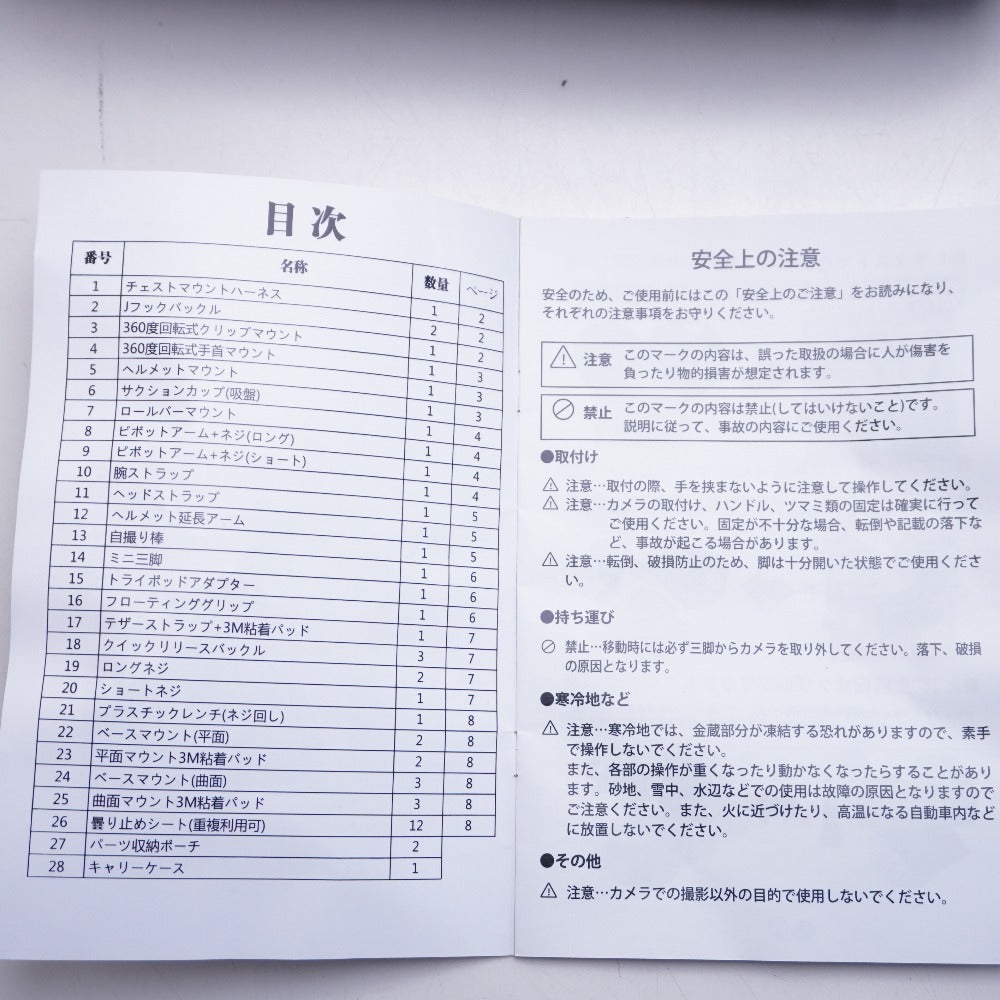 目次
番号 名称 数量 ページ
1 チェストマウントハーネス 1 2
2 Jフックバックル 2 2
3 360度回転式クリップマウント 1 2
4 360度回転式手首マウント 1 3
5 ヘルメットマウント 1 3
6 サクションカップ(吸盤) 1 3
7 ロールバーマウント 1 4
8 ピボットアーム+ネジ(ロング) 1 4
9 ピボットアーム+ネジ(ショート) 1 4
10 腕ストラップ 1 4
11 ヘッドストラップ 1 5
12 ヘルメット延長アーム 1 5
13 自撮り棒 1 5
14 ミニ三脚 1 6
15 トライポッドアダプター 1 6
16 フローティンググリップ 1 6
17 テザーストラップ+3M粘着パッド 1 7
18 クイックリリースバックル 3 7
19 ロングネジ 2 7
20 ショートネジ 1 7
21 プラスチックレンチ(ネジ回し) 1 8
22 ベースマウント(平面) 2 8
23 平面マウント3M粘着パッド 2 8
24 ベースマウント(曲面) 3 8
25 曲面マウント3M粘着パッド 3 8
26 曇り止めシート(重複利用可) 12 8
27 パーツ収納ポーチ 2
28 キャリーケース 1
安全上の注意
安全のため、ご使用前にはこの「安全上のご注意」をお読みになり、
それぞれの注意事項をお守りください。
注意 このマークの内容は、誤った取扱の場合に人が傷害を
負ったり物的損害が想定されます。
禁止 このマークの内容は禁止(してはいけないこと)です。
説明に従って、事故の内容にご使用ください。
●取付け
⚠ 注意…取付の際、手を挟まないように注意して操作してください。
⚠ 注意…カメラの取付け、ハンドル、ツマミ類の固定は確実に行って
ご使用ください。固定が不十分な場合、転倒や記載の落下な
ど、事故が起こる場合があります。
⚠ 注意…転倒、破損防止のため、脚は十分開いた状態でご使用くださ
い。
●持ち運び
⊘ 禁止…移動時には必ず三脚からカメラを取り外してください。落下、破損
の原因となります。
●寒冷地など
⚠ 注意…寒冷地では、金蔵部分が凍結する恐れがありますので、素手
で操作しないでください。
また、各部の操作が重くなったり動かなくなったらすることがあり
ます。砂地、雪中、水辺などでの使用は故障の原因となりますので
ご注意ください。また、火に近づけたり、高温になる自動車内など
に放置しないでください。
●その他
⚠ 注意…カメラでの撮影以外の目的で使用しないでください。